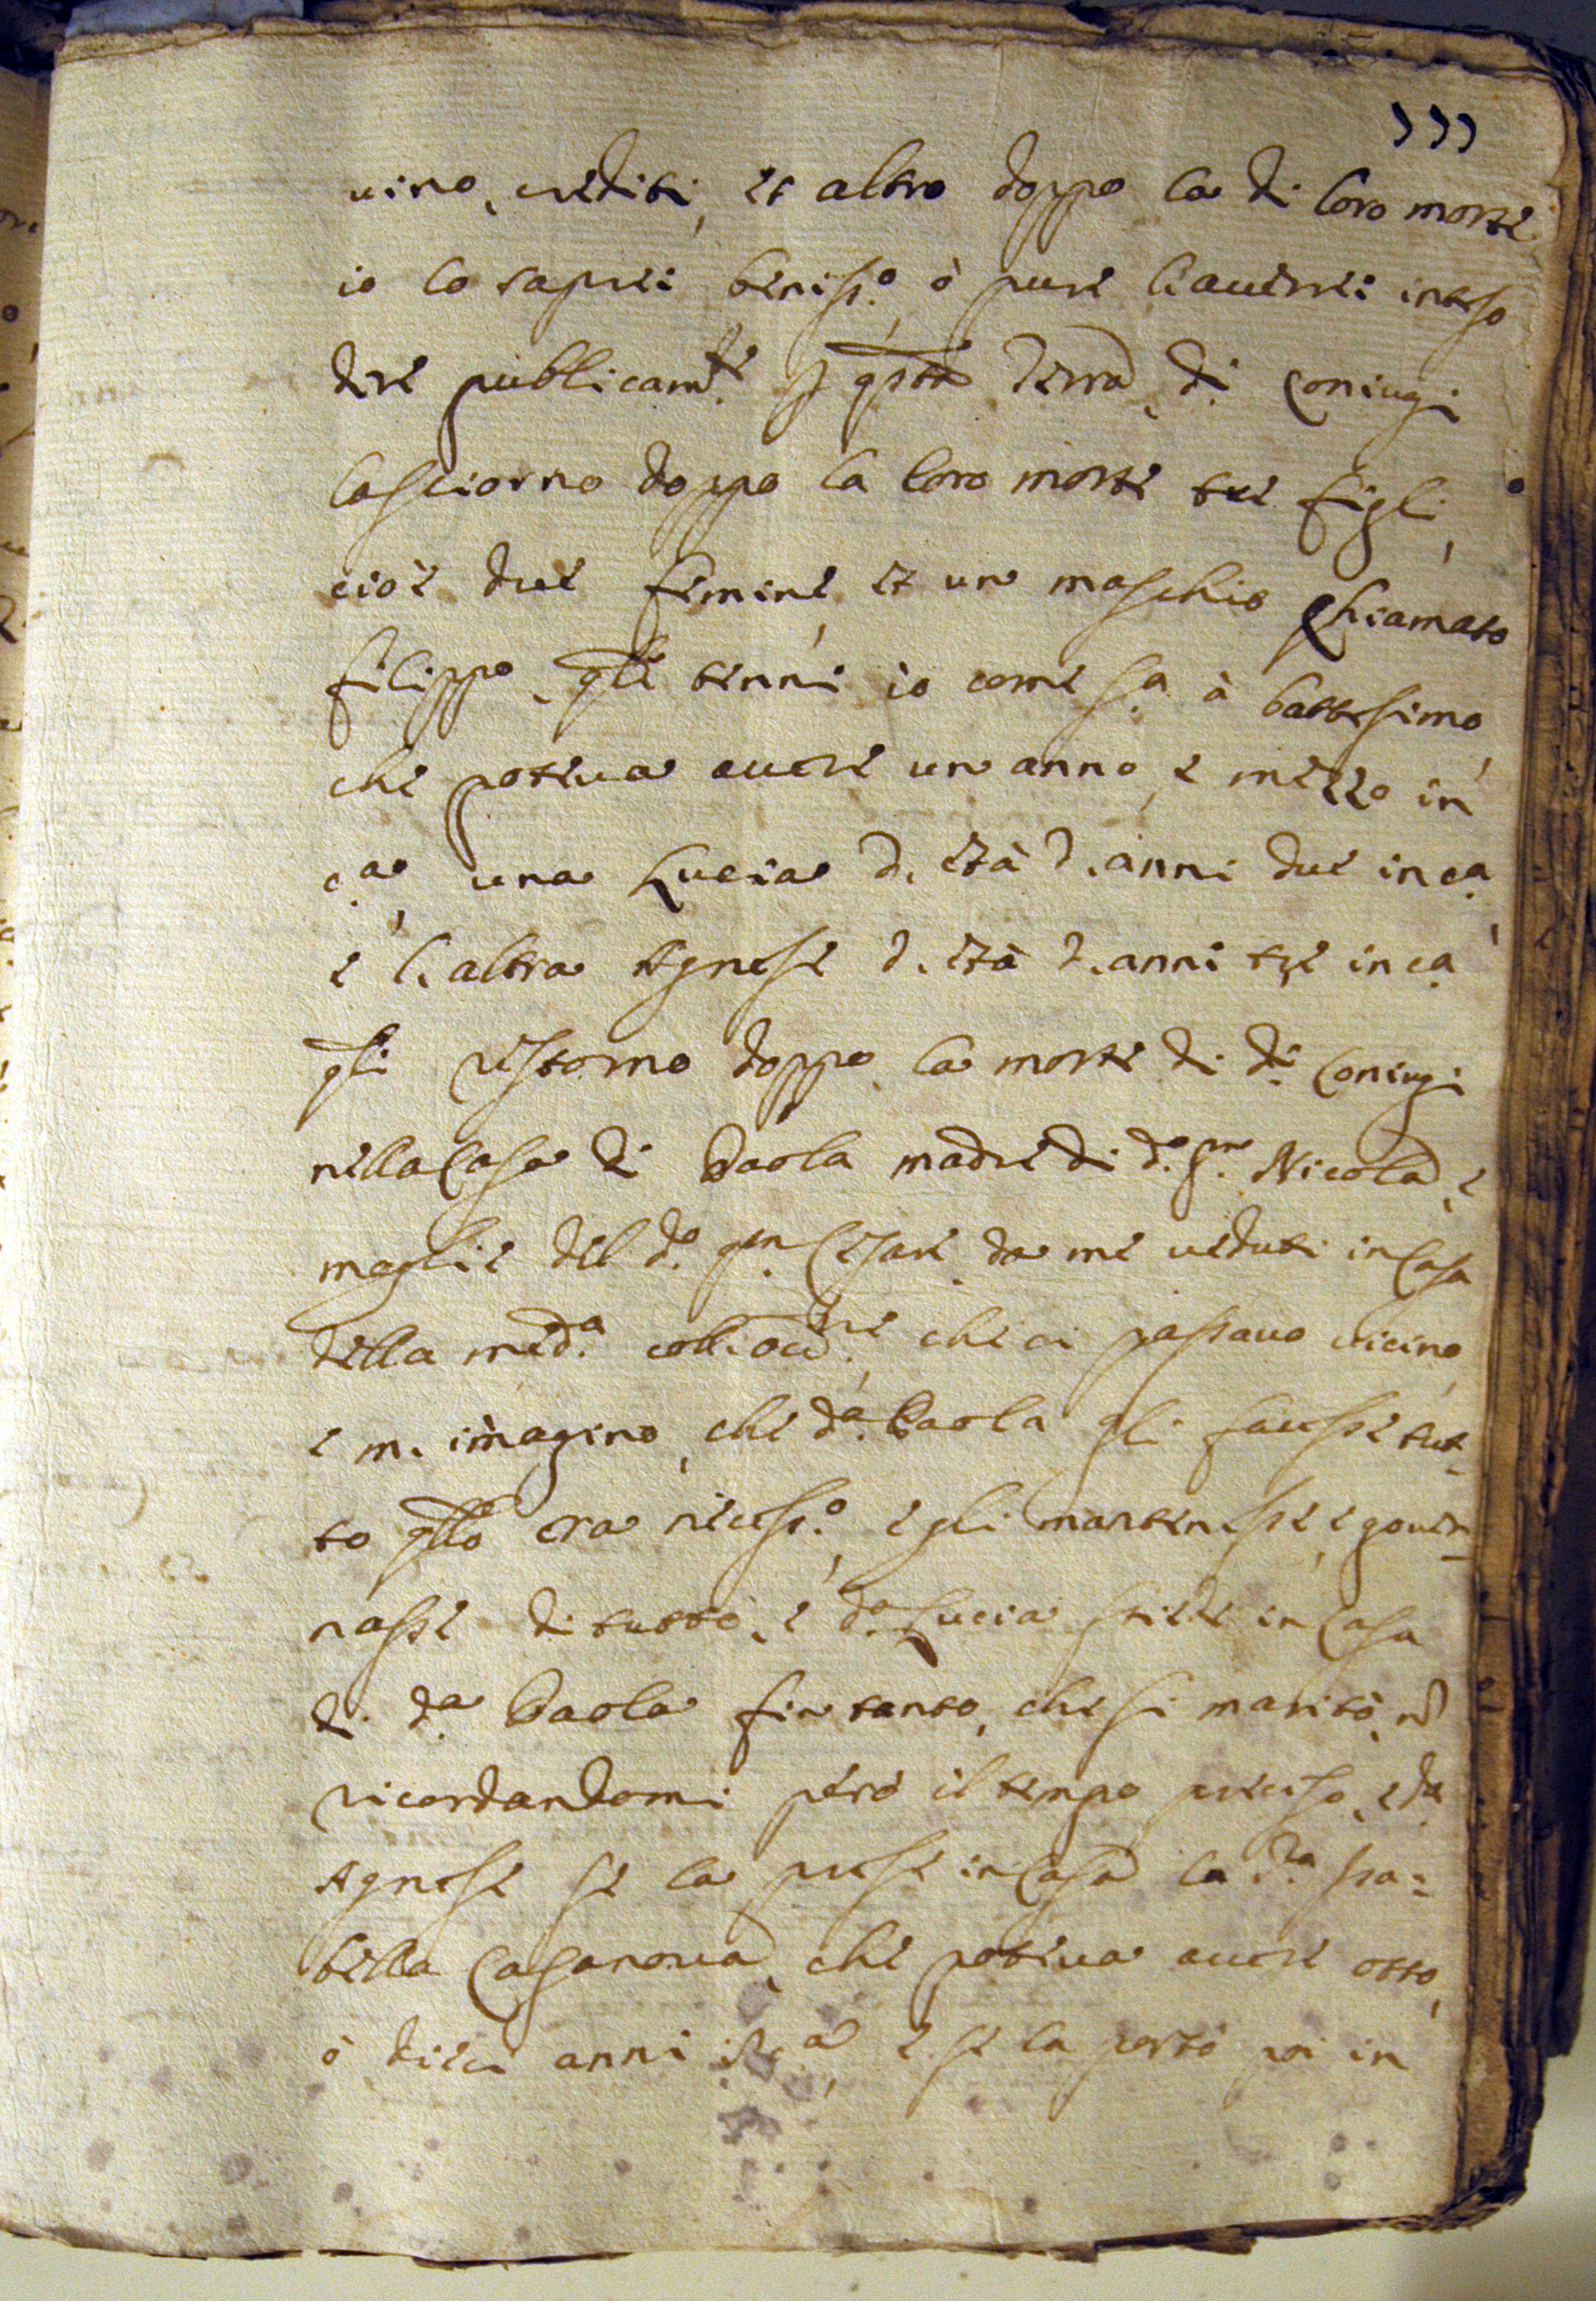 111
uino, crediti, et altro doppo la di loro morte
io lo saprei beniss.o ò pure l'auerei inteso
dire publicam.te p q.sta Terra, d.i Coniugi
lasciorno doppo la loro morte tre figli,
cioè due femine, et un maschio Chiamato
filippo, q.le tenni io come s.a à battesimo,
che poteua auere un anno, e mezzo in
c.a, una Lucia d. età d. anni due in c.a,
e l'altra Agnese d. età d. anni tre in c.a
q.li restorno doppo la morte di d.i Coniugi
nella Casa di Paola madre di d.o q.m Nicola, e
moglie del d.o q.m Cesare, da me ueduti in Casa
della med.a coll'occ.ne, che ci passauo uicino,
e m'imagino, che d.a Paola gli facesse tut-
to q.llo era necess.o, e gli mantenesse, e gouer-
nasse di tutto, e d.a Lucia stiede in Casa
di d.a Paola fin tanto, che si maritò, nō
ricordandomi però il tempo preciso, e d.a
Agnese se la prese in Casa la d.a Isa=
bella Casanoua, che poteua auere otto,
ò dieci anni in c.a, e se la portò poi in